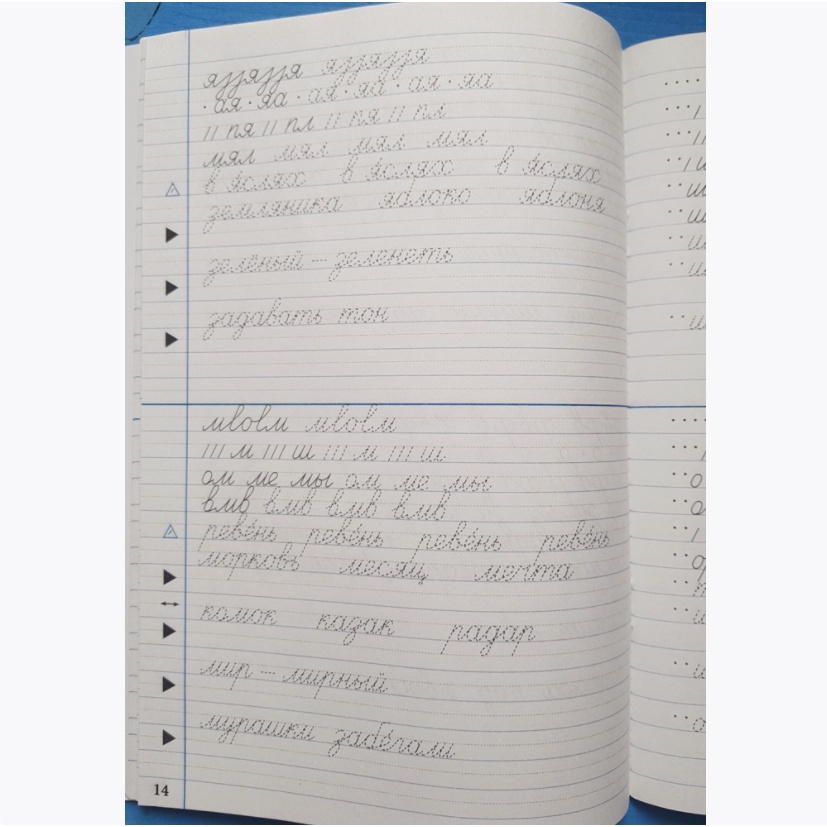 · ая · яа · ая · яа · ая · яа
// пя // пл // пя // пл
мял мял мял мял
в яслях в яслях в яслях
земляника яблоко яблоня
зелёный — зеленеть
задавать тон
/// м /// ш /// м /// ш
ом ме мы ом ме мы
вмв вмв вмв вмв
реве́нь реве́нь реве́нь реве́нь
морковь месяц мечта
комок казак радар
мир — мирный
мурашки забе́гали
14